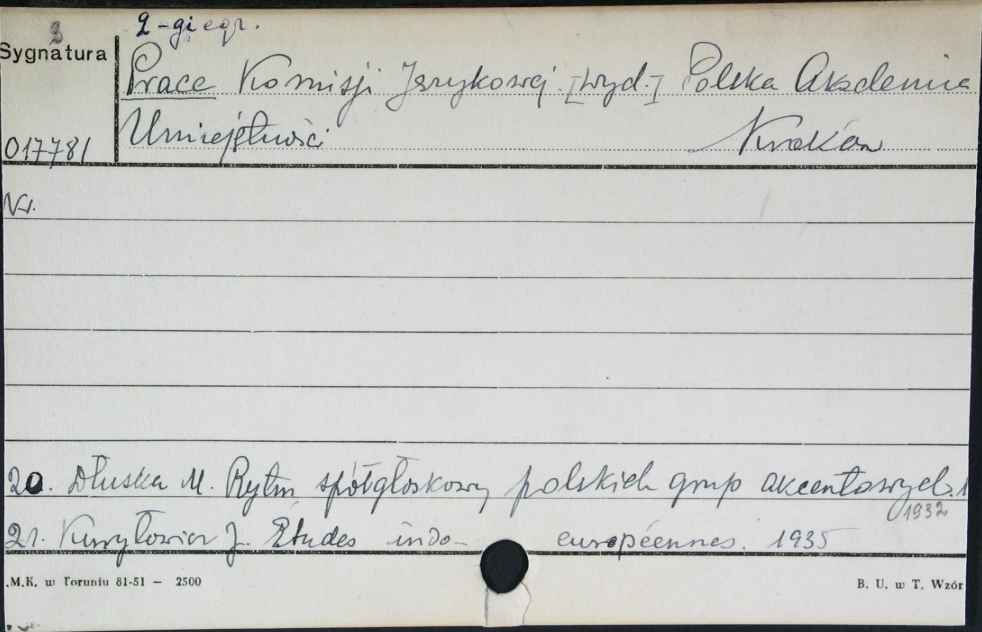 3
2-gi egz.
Sygnatura
Prace Komisji Językowej. [Wyd.] Polska Akademia
Umiejętności Kraków
017781
Nr.
20. Dłuska M. Rytm spółgłoskowy polskich grup akcentowych. 1
1932
21. Kuryłowicz J. Études indo- européennes. 1935
.M.K. w Toruniu 81-51 — 2500 B. U. w T. Wzór